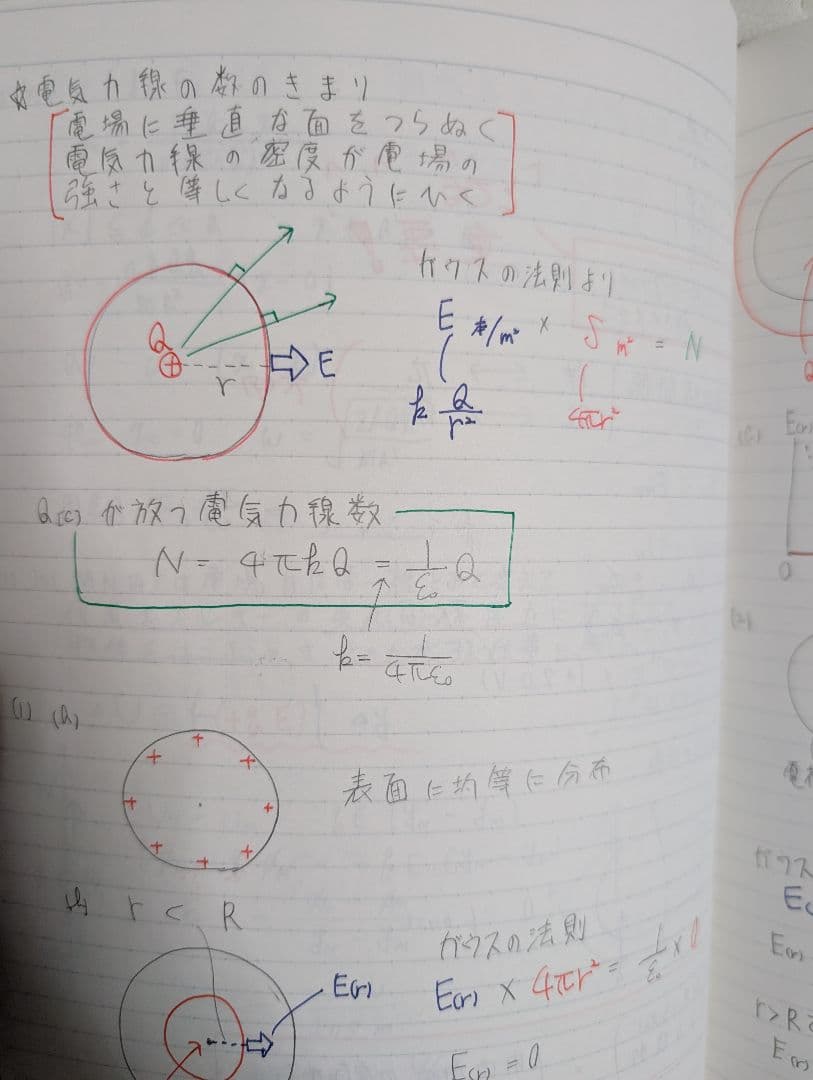 ☆電気力線の数のきまり
電場に垂直な面をつらぬく
電気力線の密度が電場の
強さと等しくなるようにひく
ガウスの法則より
E 本/m² × S m² = N
k Q/r²
4πr²
Q
⊕
r
E
Q(C)が放つ電気力線数
N = 4πkQ = 1/ε₀ Q
k = 1/4πε₀
(1) (a)
+ + + + + + + +
表面に均等に分布
(b) r < R
ガウスの法則
E(r)
E(r) × 4πr² = 1/ε₀ × 0
E(r) = 0
E(r)
0
(2)
ガウス
E(r)
r>R
E(r)